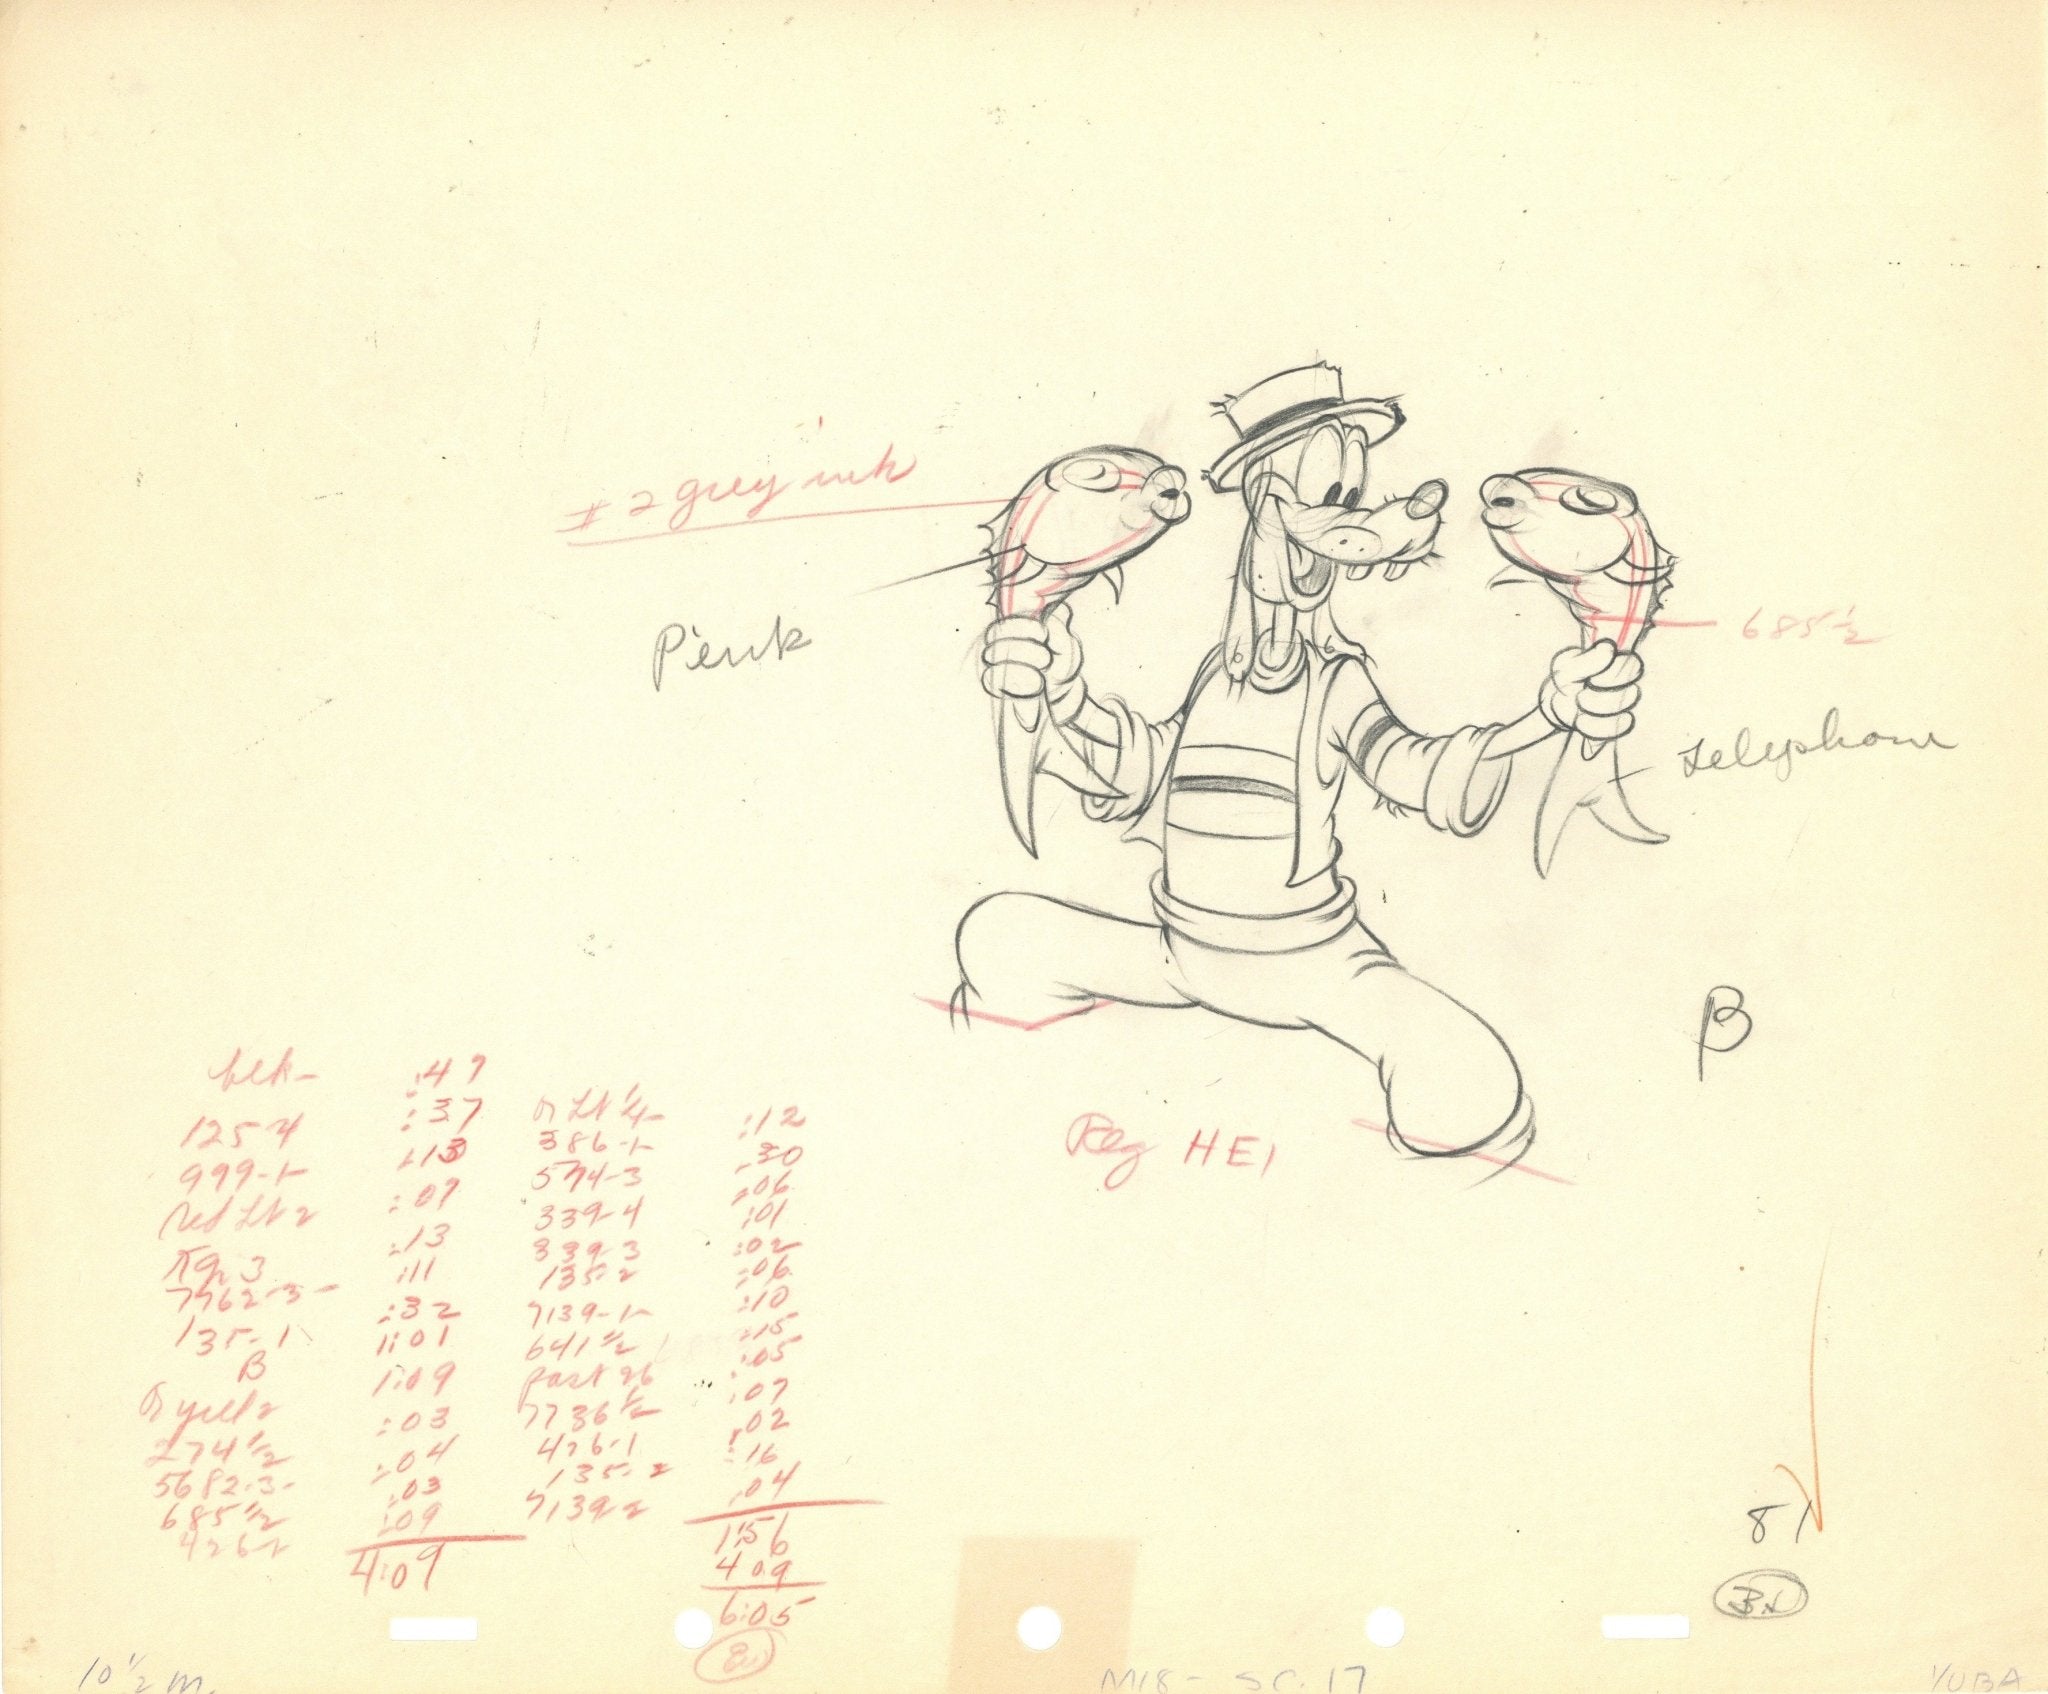 # 2 grey ink
Pink
685½
Telephone
B
Reg HE1
blk- :47
125-4 :37
999-1- :13
red Lt 2 :07
:13
7762-3- :11
135-1 :32
B 1:01
1:09
274½ :03
5682-3- :04
685½ :03
426-1- :09
4:09
Lt ¼- :12
386-1- :30
574-3 :06
339-4 :01
339-3 :02
135-2 :06
7139-1- :10
641½ :15
past 26 :05
7736½ :07
426-1 :02
135-2 :16
7139-2 :04
1:56
4 09
6:05
81
10½ M.
M18- SC. 17